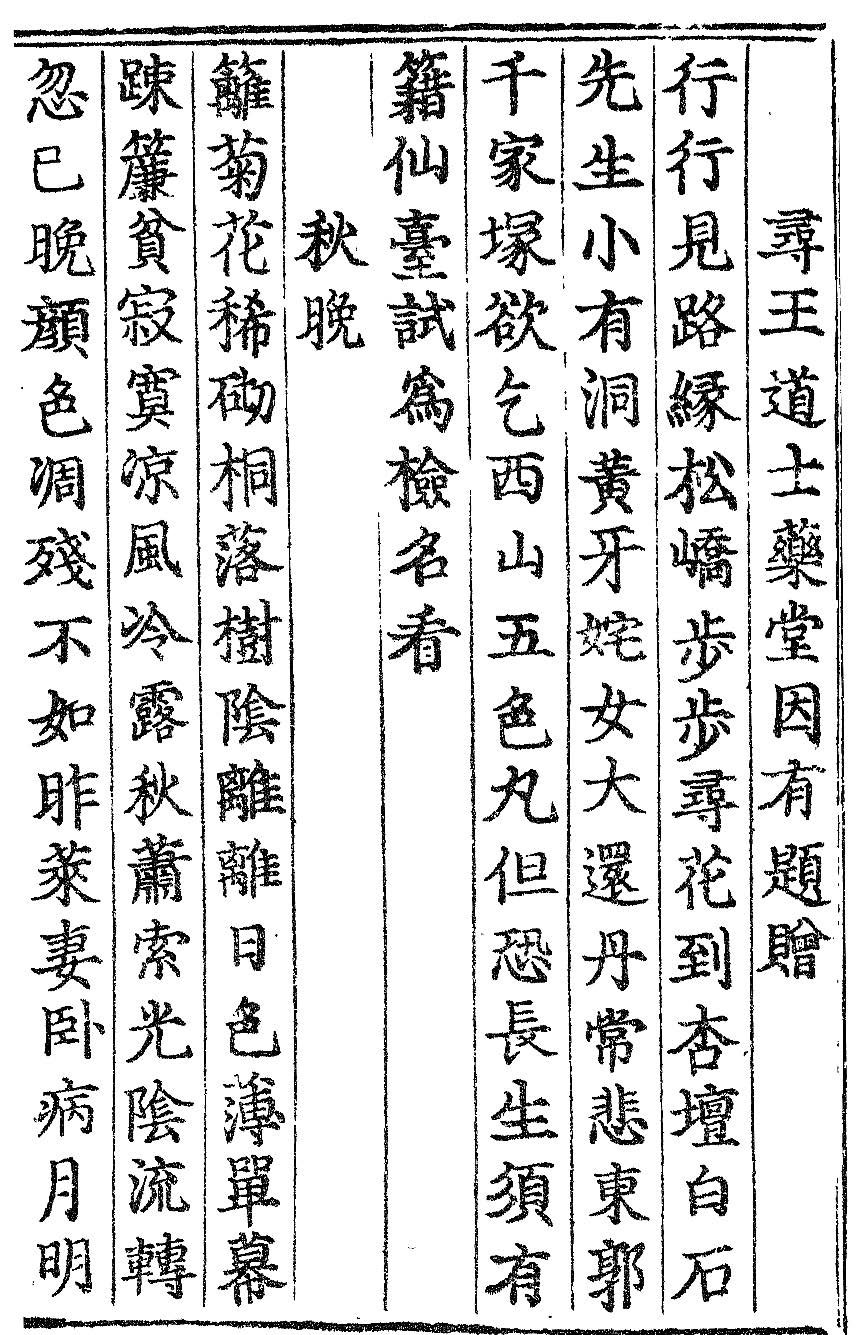 尋王道士藥堂因有題贈
行行見路緣松嶠步步尋花到杏壇白石
先生小有洞黃牙姹女大還丹常悲東郭
千家塚欲乞西山五色丸但恐長生須有
籍仙臺試為檢名看
秋晚
籬菊花稀砌桐落樹陰離離日色薄單幕
踈簾貧寂寞凉風冷露秋蕭索光陰流轉
忽已晚顏色凋殘不如昨萊妻卧病月明